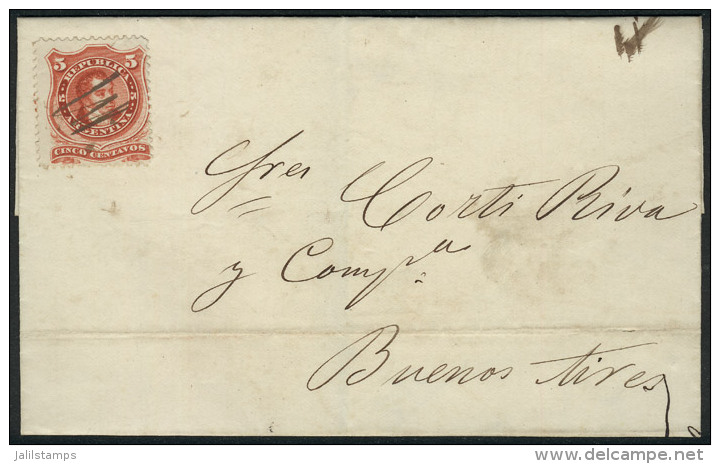 5 REPUBLICA 5
5 5
ARGENTINA
CINCO CENTAVOS
Sres Corti Riva
y Compª
Buenos Aires
jalilstamps
delcampe.net